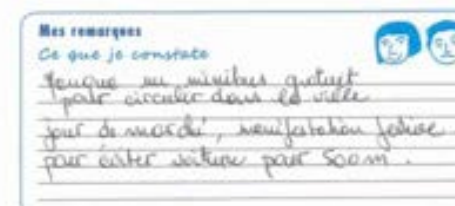 Mes remarques
Ce que je constate
Manque un minibus gratuit
pour circuler dans la ville
jour de marché, manifestation festive
pour éviter voiture pour 500m.